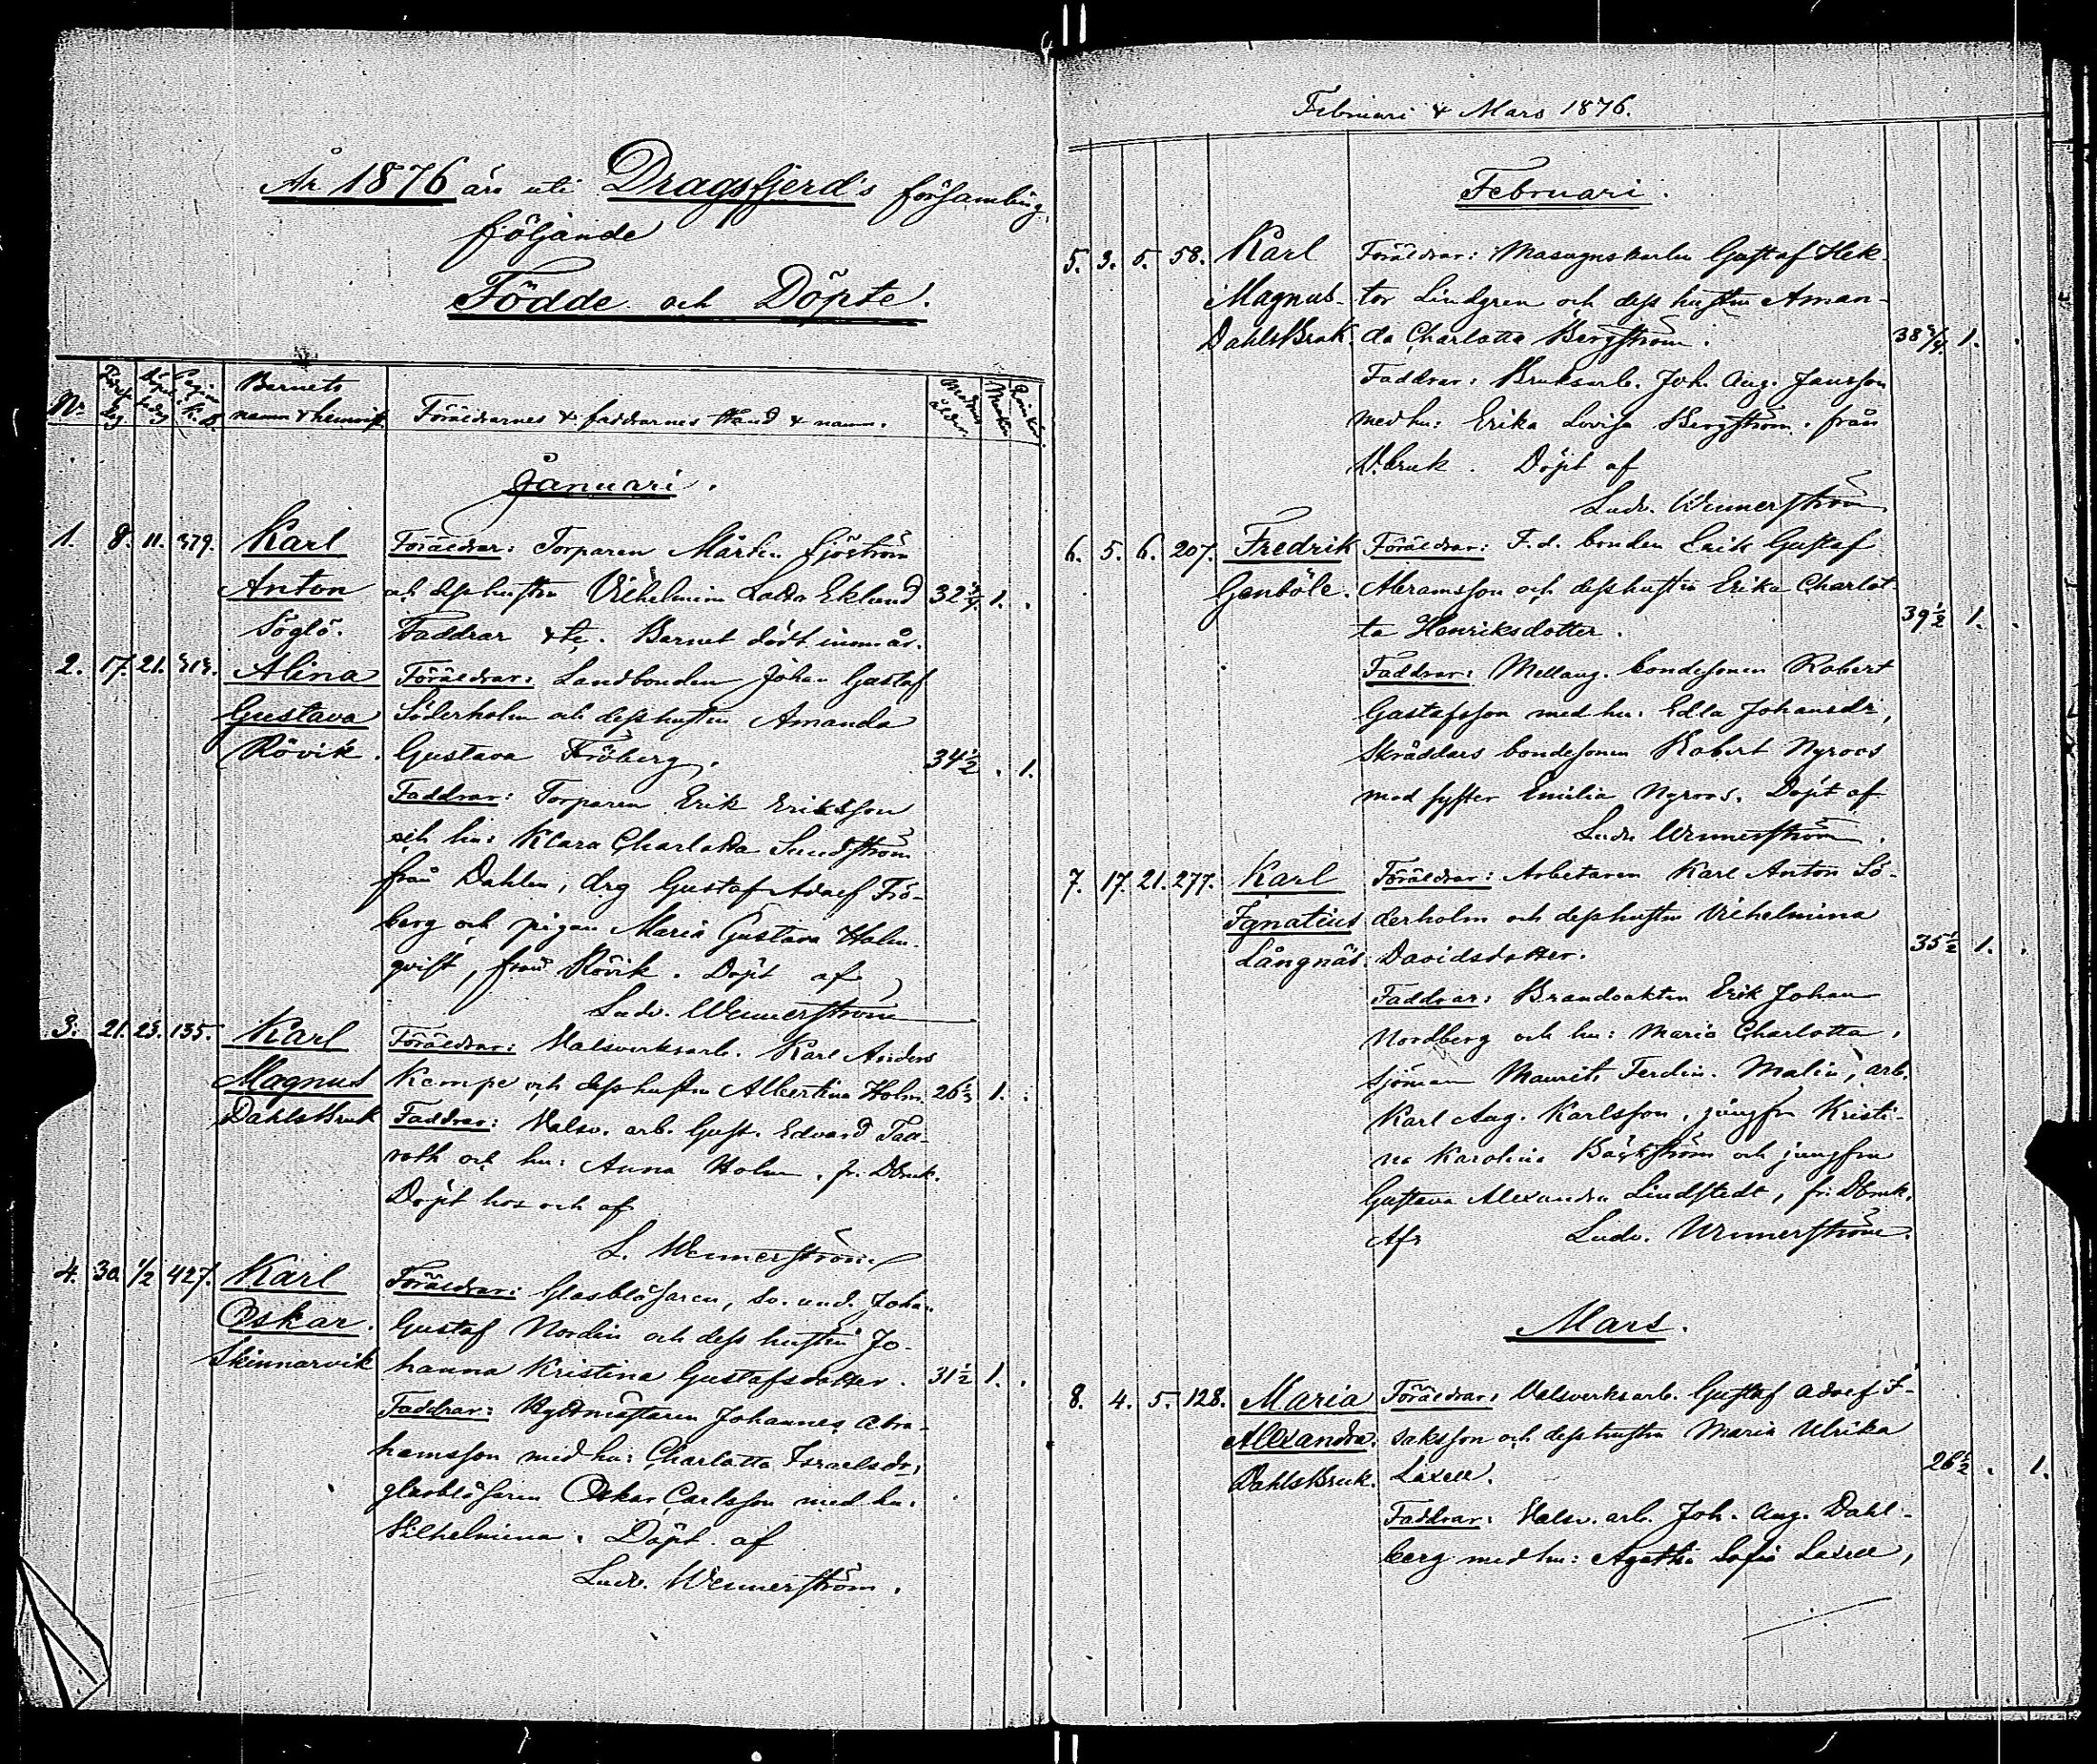 År 1876 äro uti Dragsfjerd's församling
följande
Födde och Döpte.
No. Barnets namn & hemvist. Föräldrarnes & faddrarnes stånd & namn.
Januari.
1. 8. 11. 379. Karl Föräldrar: Torparen Mårten Sjöström
Anton och dess hustru Vilhelmina Lovisa Eklund 32 3/4 1. .
Söglö. Faddrar &c. Barnet dödt inom år.
2. 17. 21. 313. Alina Föräldrar: Landbonden Johan Gustaf
Gustava Söderholm och dess hustru Amanda
Rövik. Gustava Fröberg. 34 1/2 . 1.
Faddrar: Torparen Erik Eriksson
och hu: Klara Charlotta Sundström
från Dahlen, drg Gustaf Adolf Frö-
berg och pigan Maria Gustava Holm-
qvist, från Rövik. Döpt af
Ludv. Wennerström
3. 21. 23. 135. Karl Föräldrar: Valsverksarb. Karl Anders
Magnus Kempe och dess hustru Albertina Holm. 26 1/2 1. .
DahlsBruk Faddrar: Valsv. arb. Gust. Edvard Tall-
roth och hu: Anna Holm, fr. DBruk.
Döpt hos och af
L. Wennerström
4. 30. 1/2 427. Karl Föräldrar: Glasblåsaren, sv. und. Johan
Oskar. Gustaf Nordin och dess hustru Jo-
Skinnarvik hanna Kristina Gustafsdotter. 31 1/2 1. .
Faddrar: Hyttmästaren Johannes Abra-
hamsson med hu: Charlotta Israelsdr,
glasblåsaren Oskar Carlsson med hu.
Vilhelmina. Döpt af
Ludv. Wennerström.
Februari & Mars 1876.
Februari.
5. 3. 5. 58. Karl Föräldrar: Masugnskarlen Gustaf Hek-
Magnus- tor Lindgren och dess hustru Aman-
DahlsBruk. da Charlotta Bergström. 38 3/4. 1. .
Faddrar: Bruksarb. Joh. Aug. Jansson
med hu: Erika Lovisa Bergström, från
D.bruk. Döpt af
Ludv. Wennerström
6. 5. 6. 207. Fredrik Föräldrar: F.d. bonden Erik Gustaf
Genböle. Abramsson och dess hustru Erika Charlot-
ta Henriksdotter. 39 1/2 1. .
Faddrar: Mellang. bondesonen Robert
Gustafsson med hu: Edla Johansdr,
Skräddars bondesonen Robert Nyroos
med syster Emilia Nyroos. Döpt af
Ludv. Wennerström.
7. 17. 21. 277. Karl Föräldrar: Arbetaren Karl Anton Sö-
Ignatius derholm och dess hustru Vilhelmina
Långnäs. Davidsdotter. 35 1/2 1. .
Faddrar: Brandvakten Erik Johan
Nordberg och hu: Maria Charlotta,
sjöman Maurits Ferdin. Malin, arb.
Karl Aug. Karlsson, jungfru Kristi-
na Karolina Bäckström och jungfru
Gustava Alexandra Lindstedt, fr. DBruk.
Af: Ludv. Wennerström.
Mars.
8. 4. 5. 128. Maria Föräldrar: Valsverksarb. Gustaf Adolf I-
Alexandra. saksson och dess hustru Maria Ulrika
DahlsBruk. Laxell. 26 1/2 . 1.
Faddrar: Valsv. arb. Joh. Aug. Dahl-
berg med hu: Agatha Sofia Laxell,